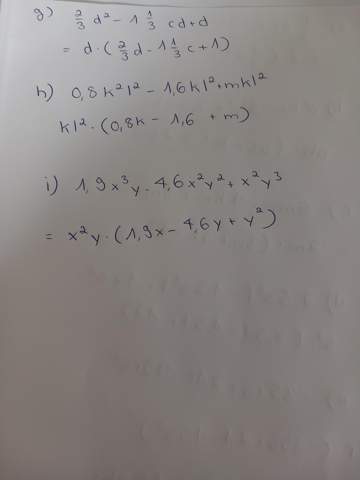 g) 2/3 d² - 1 1/3 cd + d
= d · (2/3 d - 1 1/3 c + 1)
h) 0,8k²l² - 1,6kl² + mkl²
kl² · (0,8k - 1,6 + m)
i) 1,9x³y - 4,6x²y² + x²y³
= x²y · (1,9x - 4,6y + y²)